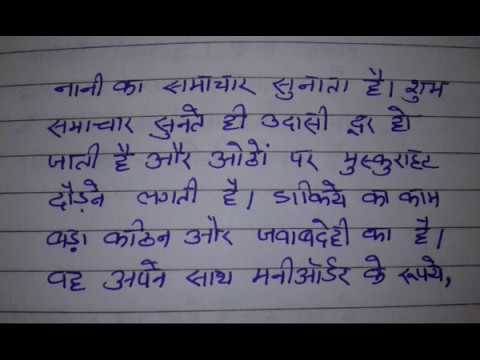 नानी का समाचार सुनाता है। शुभ
समाचार सुनते ही उदासी दूर हो
जाती है और ओठों पर मुस्कुराहट
दौड़ने लगती है। डाकिये का काम
बड़ा कठिन और जवाबदेही का है।
वह अपने साथ मनीऑर्डर के रूपये,